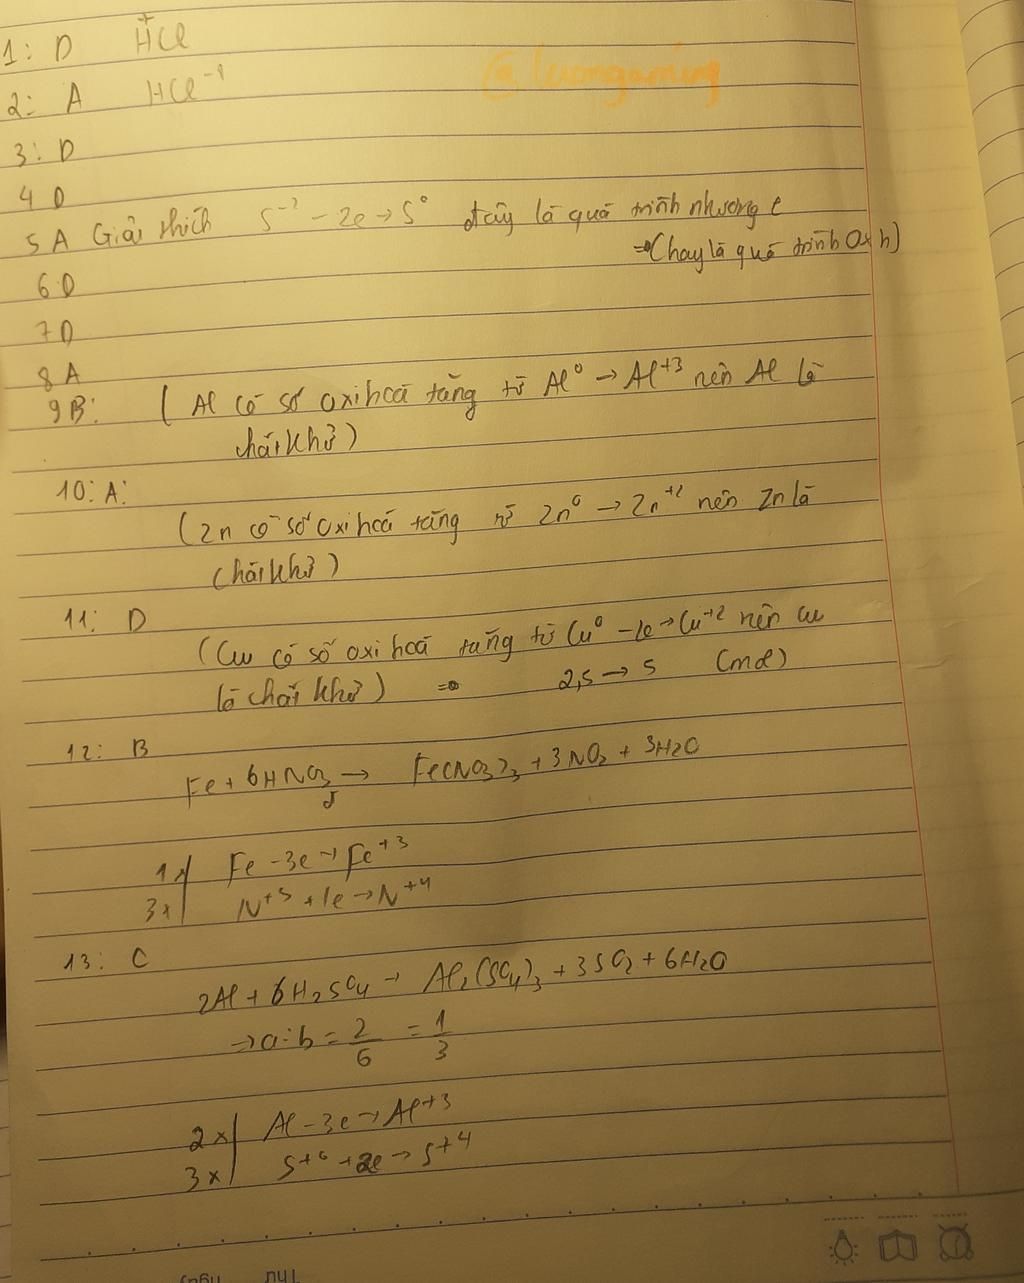 1: D H⁺Cl
2: A HCl⁻¹
@luongaming
3: D
4 D
5 A Giải thích S⁻² - 2e → S⁰ đây là quá trình nhường e
⇒ (hay là quá trình Oxh)
6 D
7 D
8 A
9 B: ( Al có số oxi hoá tăng từ Al⁰ → Al⁺³ nên Al là
chất khử )
10: A:
(Zn có số oxi hoá tăng từ Zn⁰ → Zn⁺² nên Zn là
chất khử )
11: D
(Cu có số oxi hoá tăng từ Cu⁰ - 2e → Cu⁺² nên Cu
là chất khử ) ⇒ 2,5 → 5 (mol)
12: B
Fe + 6HNO₃ → Fe(NO₃)₃ + 3NO₂ + 3H2O
1x | Fe - 3e → Fe⁺³
3x | N⁺⁵ + 1e → N⁺⁴
13: C
2Al + 6H₂SO₄ → Al₂(SO₄)₃ + 3SO₂ + 6H2O
→ a:b = 2/6 = 1/3
2x | Al - 3e → Al⁺³
3x | S⁺⁶ + 2e → S⁺⁴
Thứ Ngày